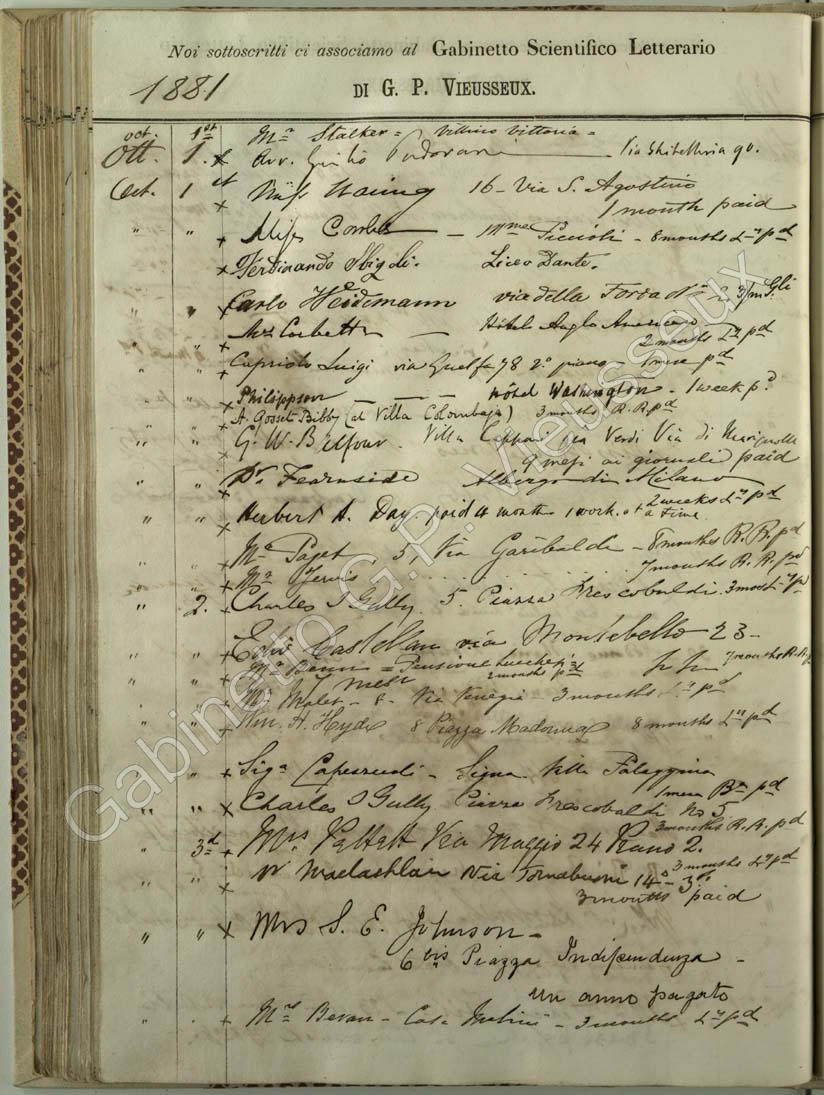 Noi sottoscritti ci associamo al Gabinetto Scientifico Letterario
1881
DI G. P. VIEUSSEUX.
oct. 1st Mr. Stalker = Vittoria =
Ott. 1. x Avv. Giulio Via Ghibellina 90.
Oct. 1st x Miss 16 - Via S. Agostino
1 month paid
" " x Miss Combe - Mme Piccioli - 8 months Ln pd
x Ferdinando Sbigoli. Liceo Dante.
" " x Carlo Heidemann via della Forca No 6 3/m Gli
" " x Mrs Corbett - Hôtel Anglo Americano
2 months Ln pd
" " x Luigi via Guelfa 78 2º piano - 1 mese pd
" " x Philippson - - - Hôtel Washington - 1 week pd
x A. Gosset Bibby (at Villa Colombaja) 3 months R.R. pd
" " x G. W. Balfour. Villa Capponi Via di
9 mesi ai giornali paid
" " x Dr. Fearnside Albergo di Milano
2 weeks Ln pd
" " x Herbert A. Day. paid 4 months 1 work. at a time.
" " x Mr Paget. 5, Via Garibaldi - 8 months R.R. pd
x Mr Jervis . . . . . . . . 7 months R.R. pd
" 2. x Charles S Gully. 5. Piazza Frescobaldi. 3 months Ln pd
" " x Castellan via Montebello 23 -
" " x Mr = Pensione 2 months pd 7 months R.R.
" " x Mrs Malet - 8. Via Venezia - 3 months Ln pd
" " x Wm. H. Hyde 8 Piazza Madonna 8 months Ln pd
" " x Siga - Signa Villa
1 mese Bn pd
" " x Charles S Gully Piazza Frescobaldi No 5
3 months R.R. pd
" 3d x Mrs Via Maggio 24 Piano 2.
3 months Ln pd
" " x W Maclachlan Via Tornabuoni 14 - 3º
3 months paid
" " x Mrs S. E. Johnson -
6 bis Piazza Indipendenza -
un anno pagato
" " x Mrs Bevan - Casa Molini - 3 months Ln pd
Gabinetto G.P. Vieusseux